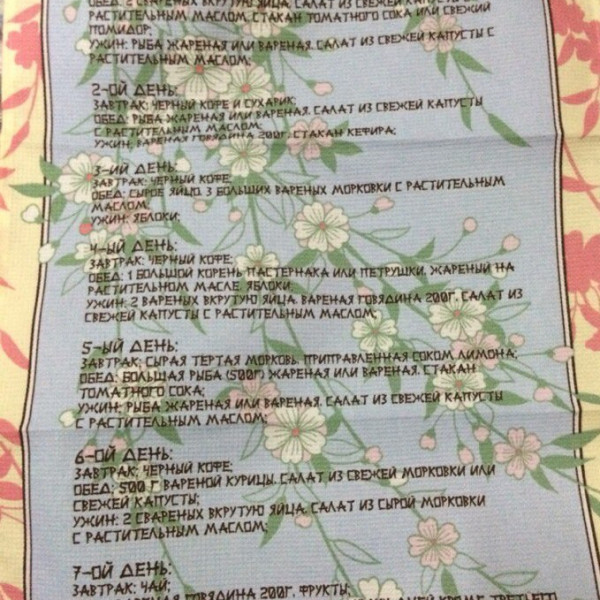 ОБЕД: 2 СВАРЕНЫХ ВКРУТУЮ ЯЙЦА, САЛАТ ИЗ СВЕЖЕЙ КАПУСТЫ С
РАСТИТЕЛЬНЫМ МАСЛОМ, СТАКАН ТОМАТНОГО СОКА ИЛИ СВЕЖИЙ
ПОМИДОР;
УЖИН: РЫБА ЖАРЕНАЯ ИЛИ ВАРЕНАЯ, САЛАТ ИЗ СВЕЖЕЙ КАПУСТЫ С
РАСТИТЕЛЬНЫМ МАСЛОМ;
2-ОЙ ДЕНЬ:
ЗАВТРАК: ЧЕРНЫЙ КОФЕ И СУХАРИК;
ОБЕД: РЫБА ЖАРЕНАЯ ИЛИ ВАРЕНАЯ, САЛАТ ИЗ СВЕЖЕЙ КАПУСТЫ
С РАСТИТЕЛЬНЫМ МАСЛОМ;
УЖИН: ВАРЕНАЯ ГОВЯДИНА 200Г, СТАКАН КЕФИРА;
3-ИЙ ДЕНЬ:
ЗАВТРАК: ЧЕРНЫЙ КОФЕ;
ОБЕД: СЫРОЕ ЯЙЦО, 3 БОЛЬШИХ ВАРЕНЫХ МОРКОВКИ С РАСТИТЕЛЬНЫМ
МАСЛОМ;
УЖИН: ЯБЛОКИ;
4-ЫЙ ДЕНЬ:
ЗАВТРАК: ЧЕРНЫЙ КОФЕ;
ОБЕД: 1 БОЛЬШОЙ КОРЕНЬ ПАСТЕРНАКА ИЛИ ПЕТРУШКИ, ЖАРЕНЫЙ НА
РАСТИТЕЛЬНОМ МАСЛЕ, ЯБЛОКИ;
УЖИН: 2 ВАРЕНЫХ ВКРУТУЮ ЯЙЦА, ВАРЕНАЯ ГОВЯДИНА 200Г, САЛАТ ИЗ
СВЕЖЕЙ КАПУСТЫ С РАСТИТЕЛЬНЫМ МАСЛОМ;
5-ЫЙ ДЕНЬ:
ЗАВТРАК: СЫРАЯ ТЕРТАЯ МОРКОВЬ, ПРИПРАВЛЕННАЯ СОКОМ ЛИМОНА;
ОБЕД: БОЛЬШАЯ РЫБА (500Г) ЖАРЕНАЯ ИЛИ ВАРЕНАЯ, СТАКАН
ТОМАТНОГО СОКА;
УЖИН: РЫБА ЖАРЕНАЯ ИЛИ ВАРЕНАЯ, САЛАТ ИЗ СВЕЖЕЙ КАПУСТЫ
С РАСТИТЕЛЬНЫМ МАСЛОМ;
6-ОЙ ДЕНЬ:
ЗАВТРАК: ЧЕРНЫЙ КОФЕ;
ОБЕД: 500 Г ВАРЕНОЙ КУРИЦЫ, САЛАТ ИЗ СВЕЖЕЙ МОРКОВКИ ИЛИ
СВЕЖЕЙ КАПУСТЫ;
УЖИН: 2 СВАРЕНЫХ ВКРУТУЮ ЯЙЦА, САЛАТ ИЗ СЫРОЙ МОРКОВКИ
С РАСТИТЕЛЬНЫМ МАСЛОМ;
7-ОЙ ДЕНЬ:
ЗАВТРАК: ЧАЙ;
ГОВЯДИНА 200Г, ФРУКТЫ;
КРОМЕ ТРЕТЬЕГО